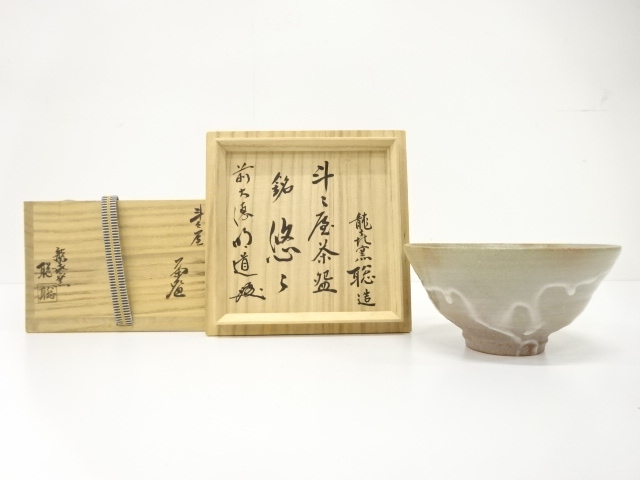 龍土窯 聡造
斗々屋茶盌
銘 悠々
前大徳明道
斗々屋
茶盌
龍土窯
聡